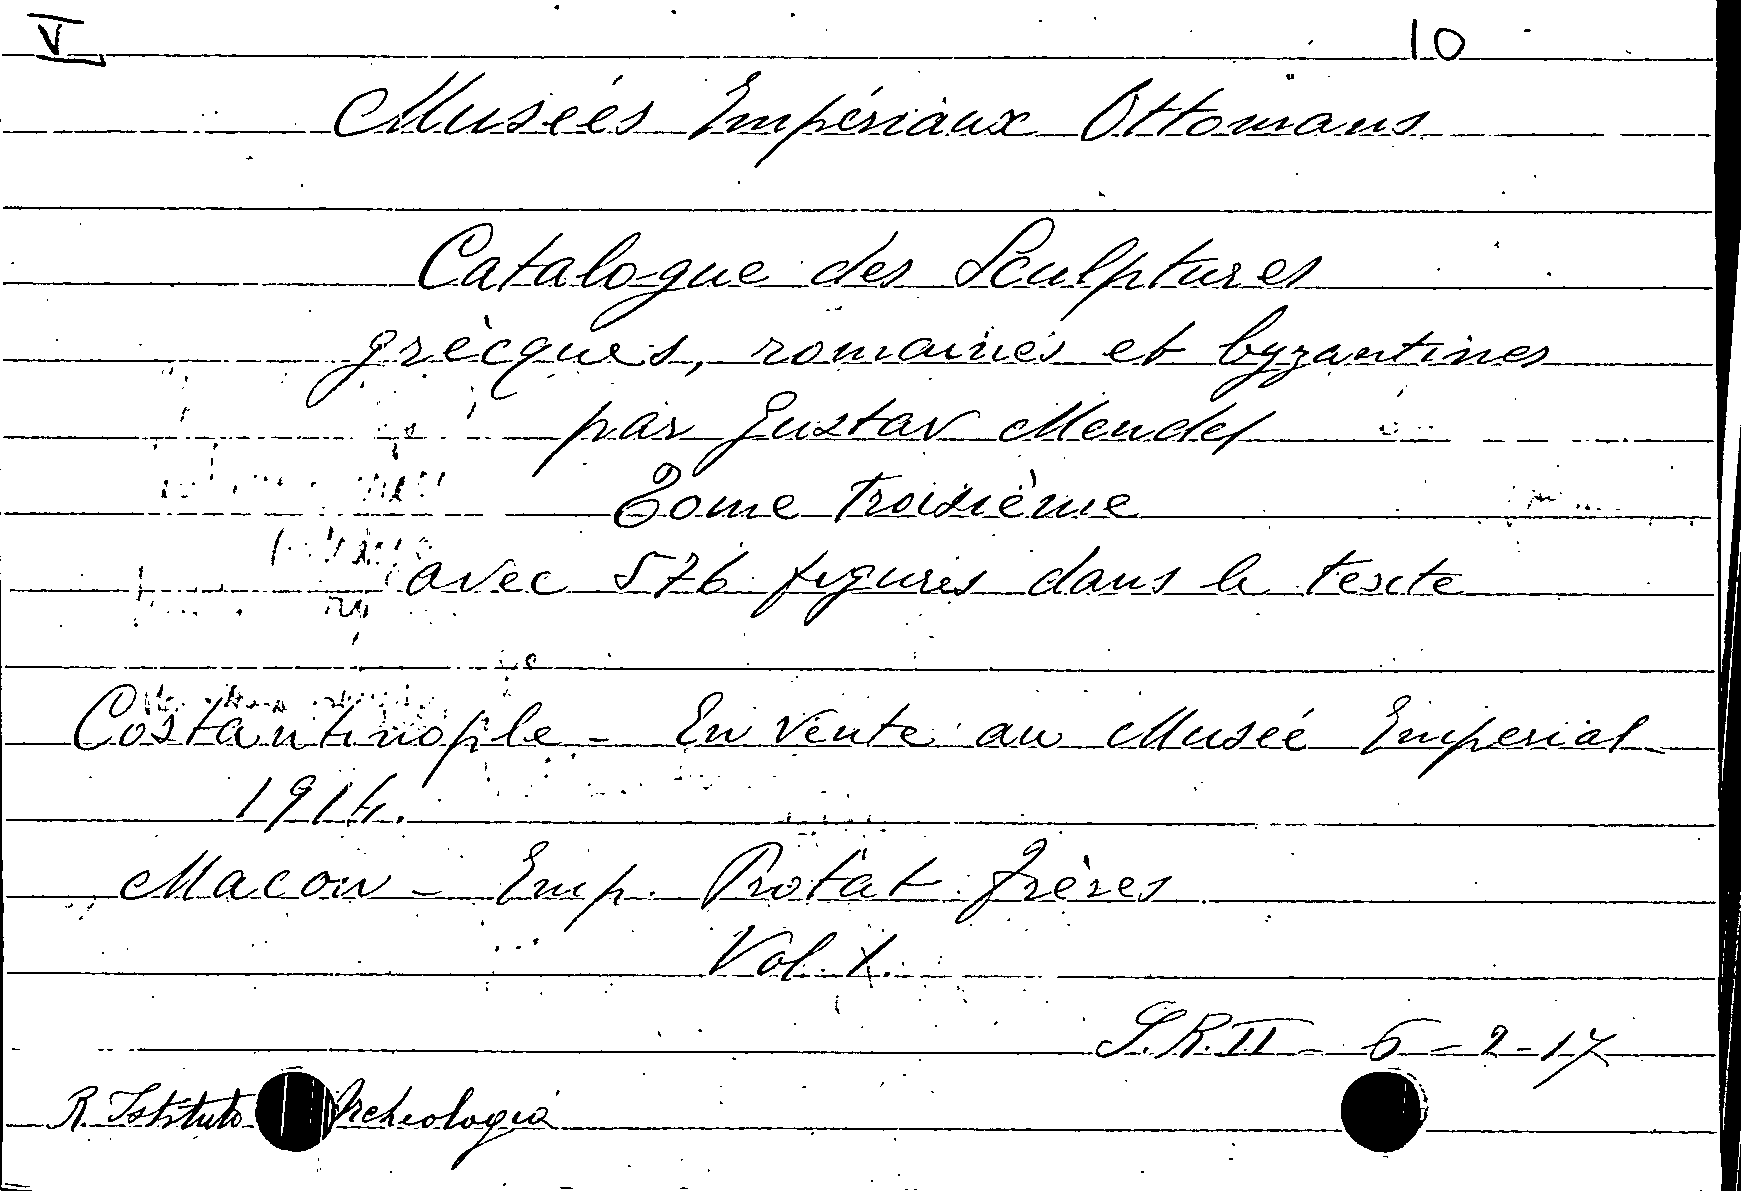 V 10
Museés Impériaux Ottomans
Catalogue des Sculptures
grècques, romaines et byzantines
par Gustav Mendel
Tome troisième
avec 576 figures dans le texte
Costantinople - En vente au Museé Imperial
1914.
Macon - Imp. Protat frères
Vol. 1.
S.R.II - 6 - 2 - 17
R. Istituto Archeologia